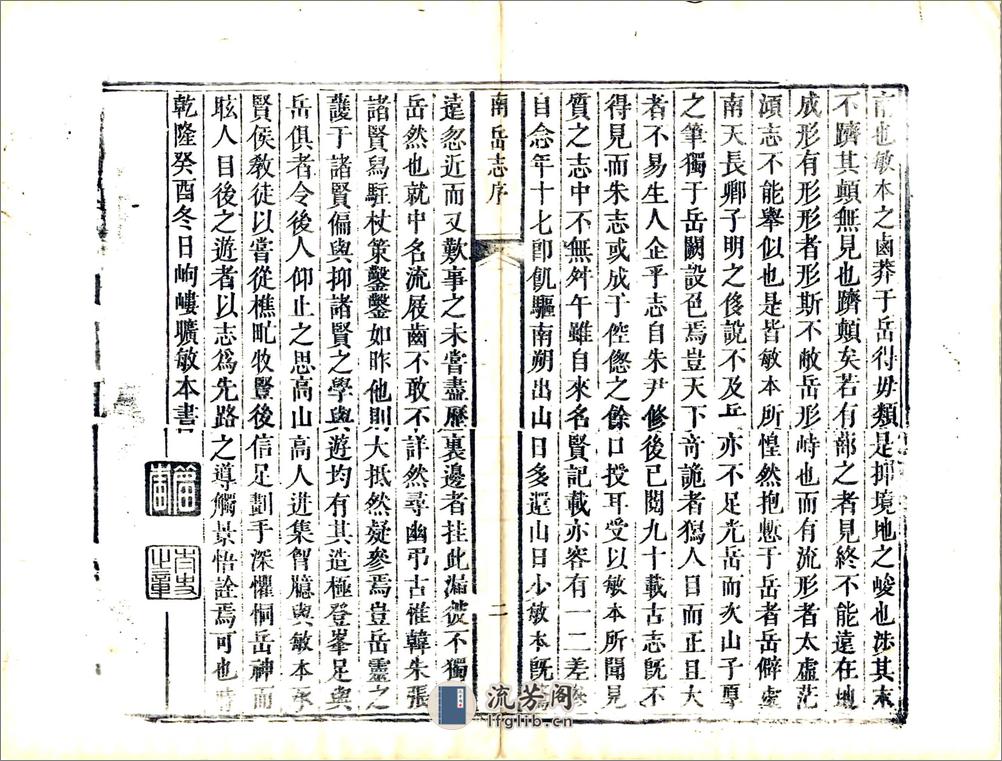 前也敏本之鹵莽于岳得毋類是抑境地之峻也涉其末
不躋其顛無見也躋顛矣若有部之者見終不能遠在地
成形有形形者形斯不敝岳形峙也而有流形者太虛茫
澒志不能舉似也是皆敏本所惶然抱慙于岳者岳僻處
南天長卿子明之俊說不及丘亦不足光岳而次山子厚
之筆獨于岳闕設色焉豈天下奇詭者獨人目而正且大
者不易生人企乎志自朱尹修後已閱九十載古志既不
得見而朱志或成于倥傯之餘口授耳受以敏本所聞見
質之志中不無舛午雖自來名賢記載亦容有一二差
自念年十七卽飢驅南朔出山日多還山日少敏本旣
南岳志序
二
遠忽近而又歎事之未嘗盡歷裏邊者挂此漏彼不獨
岳然也就中名流屐齒不敢不詳然尋幽弔古惟韓朱張
諸賢舄駐杖策鑿鑿如昨他則大抵然疑參焉豈岳靈之
護于諸賢偏與抑諸賢之學與遊均有其造極登峯足與
岳俱者令後人仰止之思高山高人迸集胷臆與敏本
賢侯敎徒以嘗從樵畝牧豎後信足劃手深懼恫岳神而
眩人目後之遊者以志爲先路之導觸景悟詮焉可也
乾隆癸酉冬日岣嶁曠敏本書
流芳阁
lfglib.cn